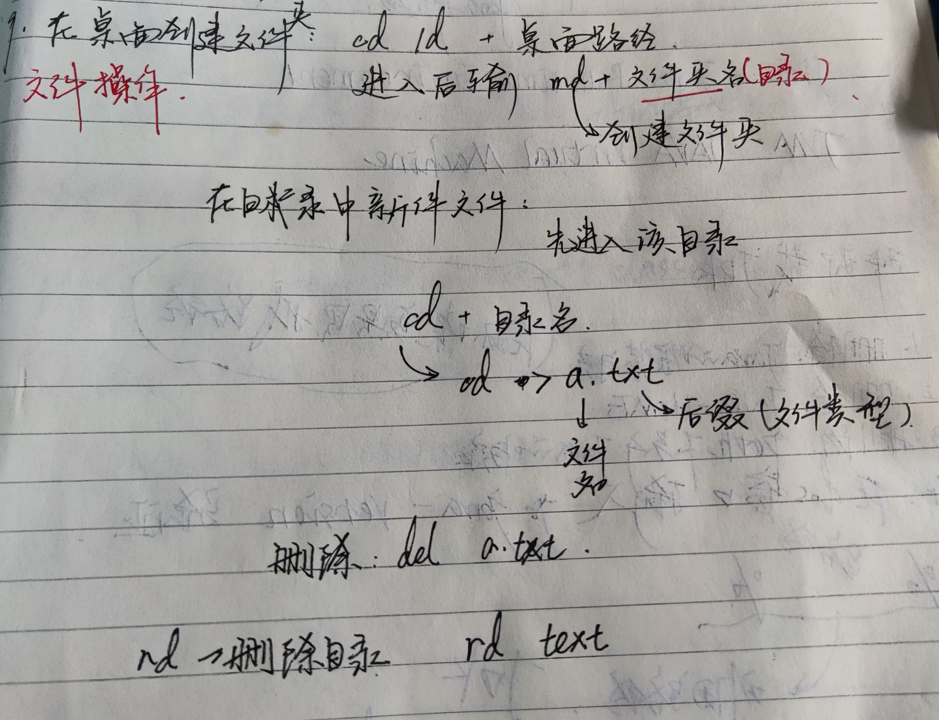 9. 在桌面创建文件夹: cd /d + 桌面路径.
文件操作.
进入后输 md + 文件夹名(目录)
创建文件夹
在目录中新件文件:
先进入该目录
cd + 目录名.
cd => a.txt
后缀(文件类型)
文件名
删除: del a.txt.
rd → 删除目录 rd text